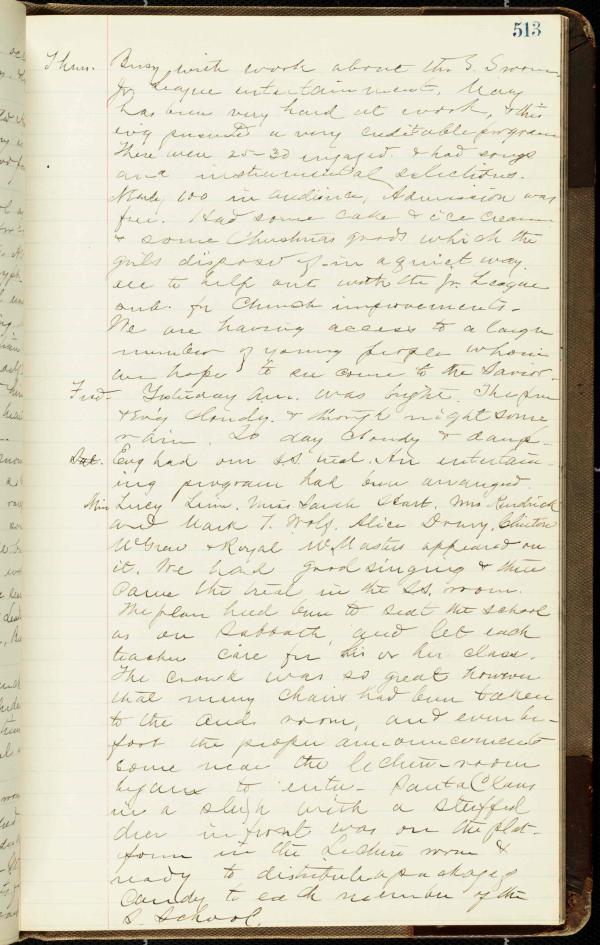 513
Thur. Busy with work about the S. S. room.
Jr. League entertainments. Mary
has been very hard at work, & this
evg presented a very creditable program
There were 25-30 engaged & had songs
and instrumental selections.
Nearly 100 in audience, Admission was
free. Had some cake & ice cream
& some Christmas goods which the
girls dispose of in a quiet way.
all to help out with the Jr. League
sub. for Church improvements.
We are having access to a large
number of young people whom
we hope to see come to the Savior.
Frid. Yesterday a.m. was bright. The p.m
& ev'g cloudy & though night some
rain. To day cloudy & damp.
Sat. Evg had our S.S. treat. An entertain-
ing program had been arranged.
Miss Lucy Linn, Miss Sarah Hart, Mrs Kendrick
and Mark T. Wolf, Alice Drury, Clinton
McGrew & Royal McMasters appeared on
it. We had good singing & then
came the treat in the S.S. room.
The plan had been to seat the school
as on Sabbath, and let each
teacher care for his or her class.
The crowd was so great however
that many chairs had been taken
to the auds room, and even be-
fore the proper announcements
some near the lecture-room
began to enter. Santa Claus
in a sleigh with a stuffed
deer in front was on the plat-
form in the Lecture room &
ready to distribute a package
candy to each member of the
S. School.